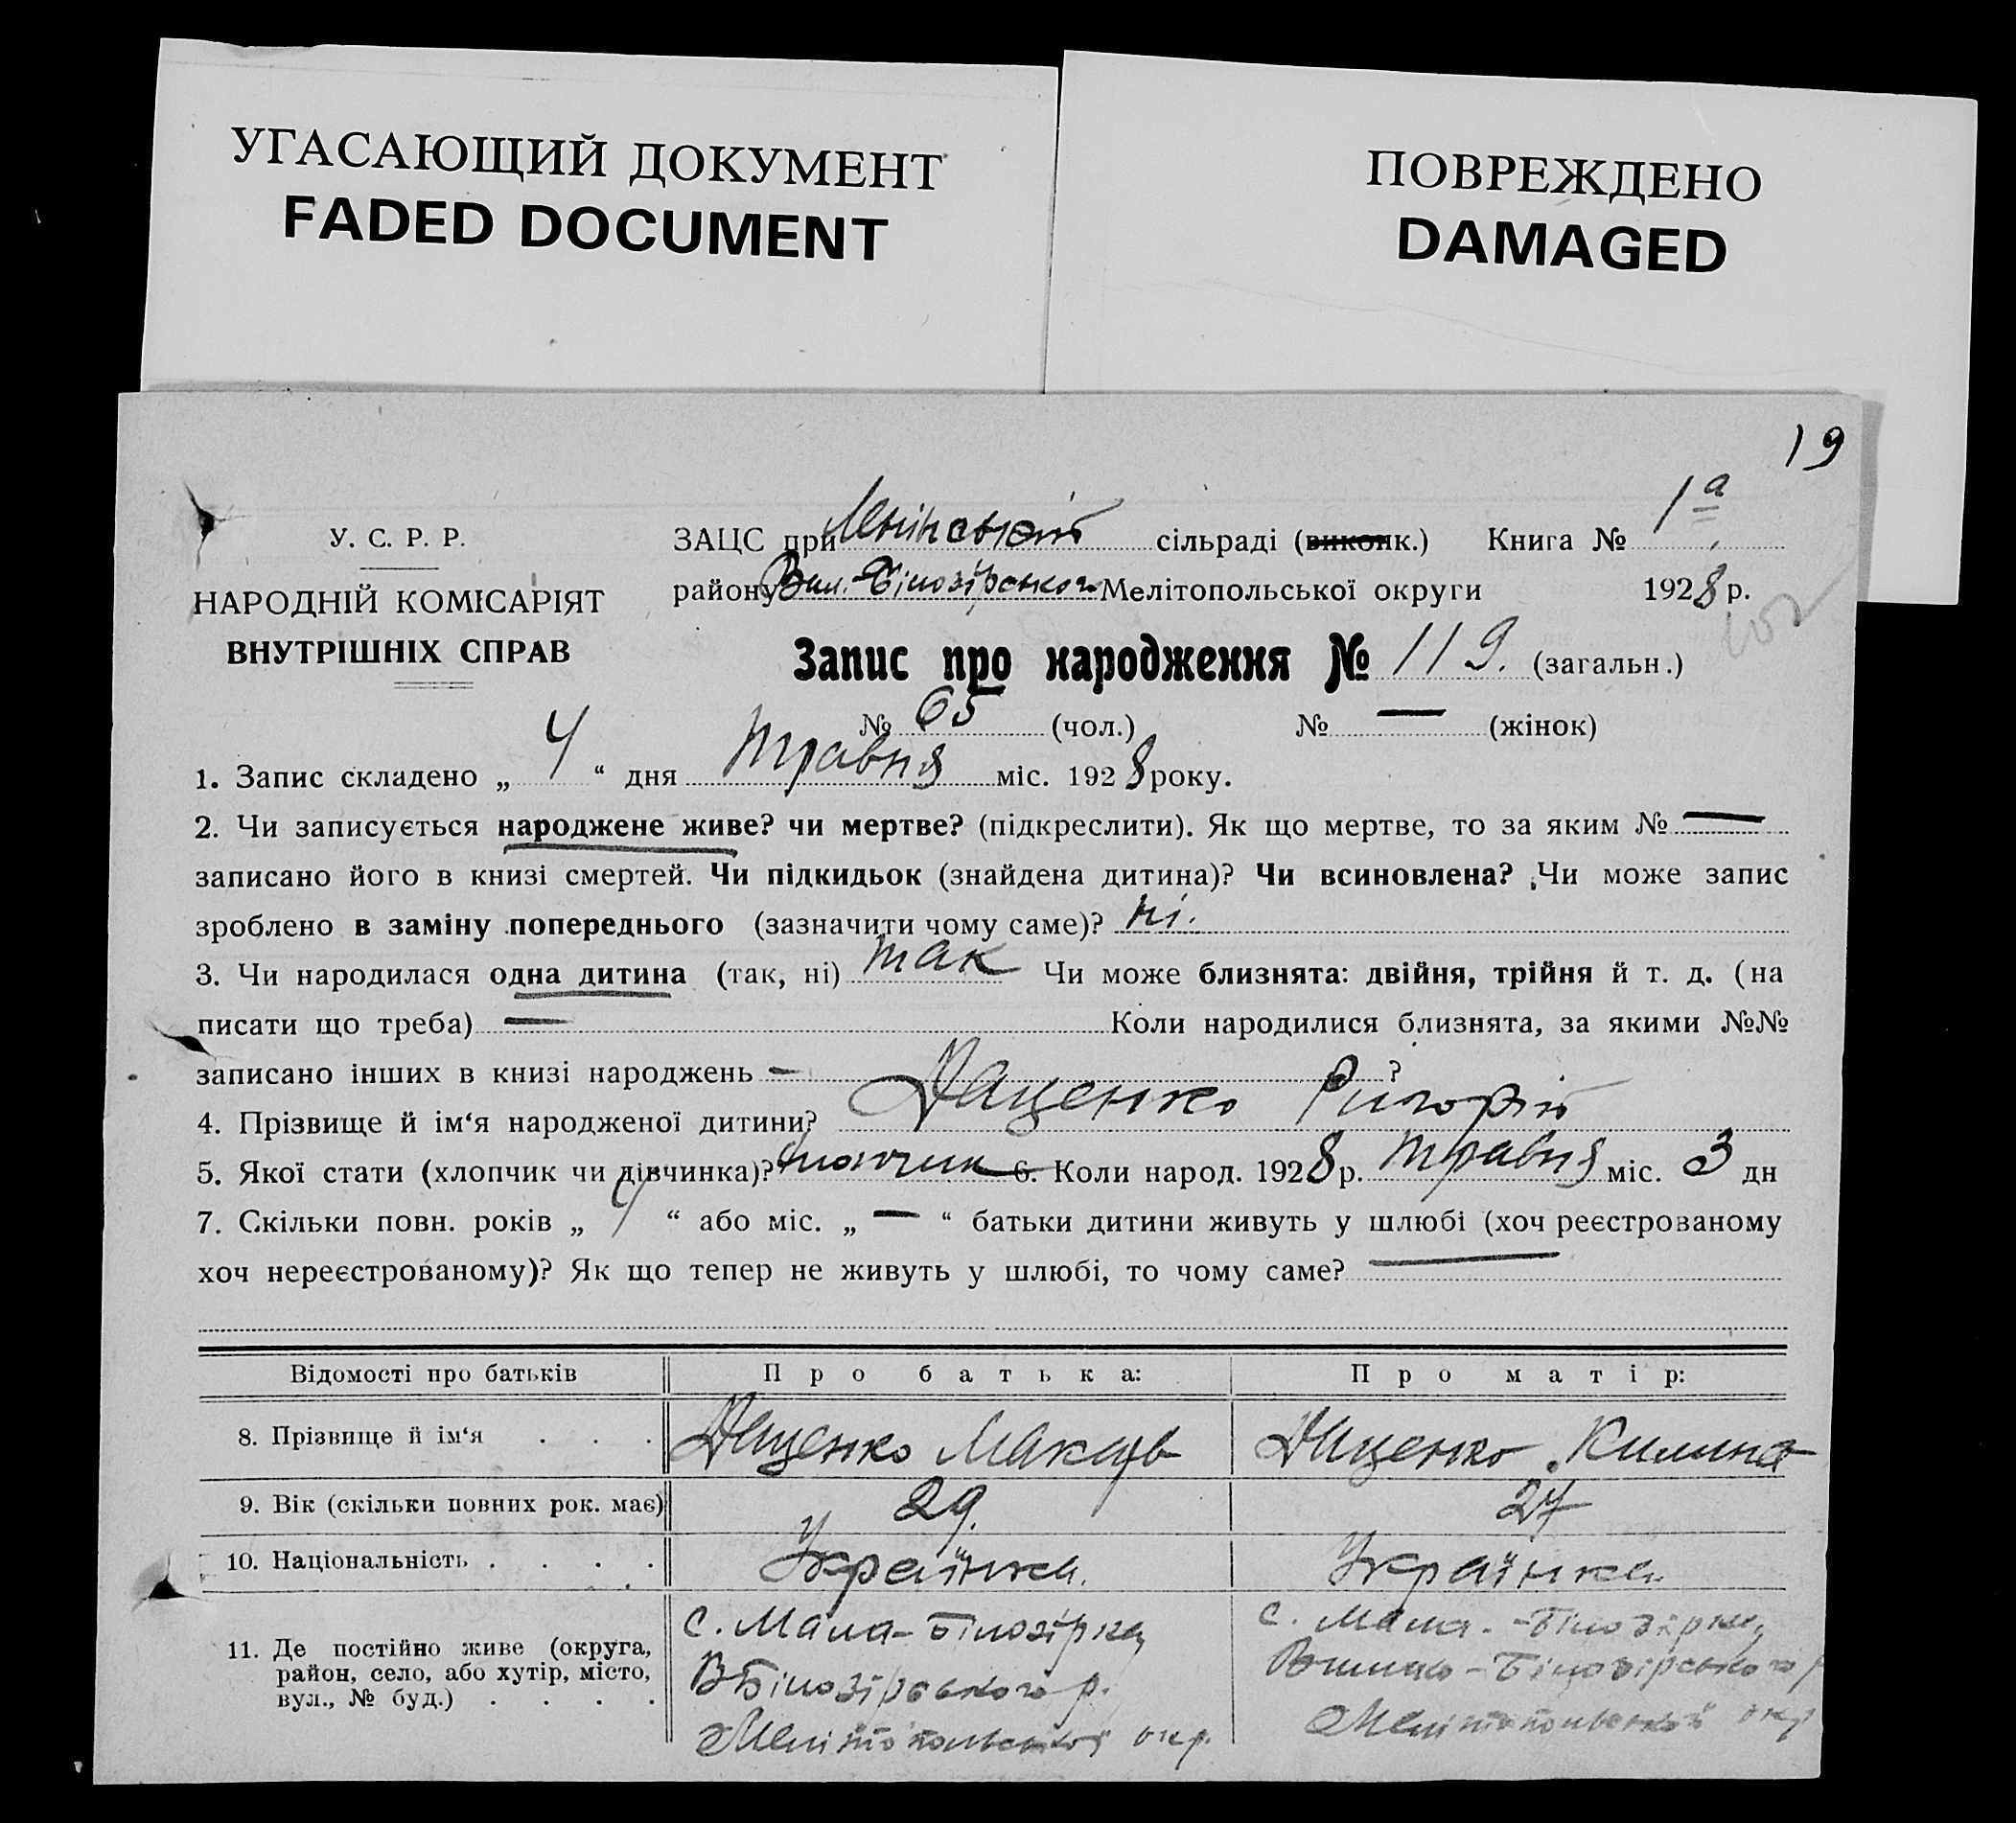 УГАСАЮЩИЙ ДОКУМЕНТ
FADED DOCUMENT
ПОВРЕЖДЕНО
DAMAGED
19
У. С. Р. Р.
НАРОДНІЙ КОМІСАРІЯТ
ВНУТРІШНІХ СПРАВ
ЗАЦС при Ленінській сільраді (виконк.) Книга № 1а
району Вел.-Білозірського Мелітопольської округи 1928 р.
Запис про народження № 119. (загальн.)
№ 65 (чол.) № — (жінок)
1. Запис складено „ 4 “ дня травня міс. 1928 року.
2. Чи записується народжене живе? чи мертве? (підкреслити). Як що мертве, то за яким № —
записано його в книзі смертей. Чи підкидьок (знайдена дитина)? Чи всиновлена? Чи може запис
зроблено в заміну попереднього (зазначити чому саме)? ні.
3. Чи народилася одна дитина (так, ні) так Чи може близнята: двійня, трійня й т. д. (на
писати що треба) — Коли народилися близнята, за якими №№
записано інших в книзі народжень — ?
4. Прізвище й ім‘я народженої дитини? Даценко Григорій
5. Якої стати (хлопчик чи дівчинка)? хлопчик 6. Коли народ. 1928 р. травня міс. 3 дн
7. Скільки повн. років „ 4 “ або міс. „ — “ батьки дитини живуть у шлюбі (хоч реєстрованому
хоч нереєстрованому)? Як що тепер не живуть у шлюбі, то чому саме? —
Відомості про батьків Про батька: Про матір:
8. Прізвище й ім‘я . . . Даценко Макар Даценко Килина
9. Вік (скільки повних рок. має) 29. 27
10. Національність . . . . Українка. Українка.
11. Де постійно живе (округа,
район, село, або хутір, місто,
вул., № буд.) . . . .
с. Мала-Білозірка
ВБілозірського р.
Мелітопольської окр.
с. Мала-Білозірка
Велико-Білозірського р
Мелітопольської окр